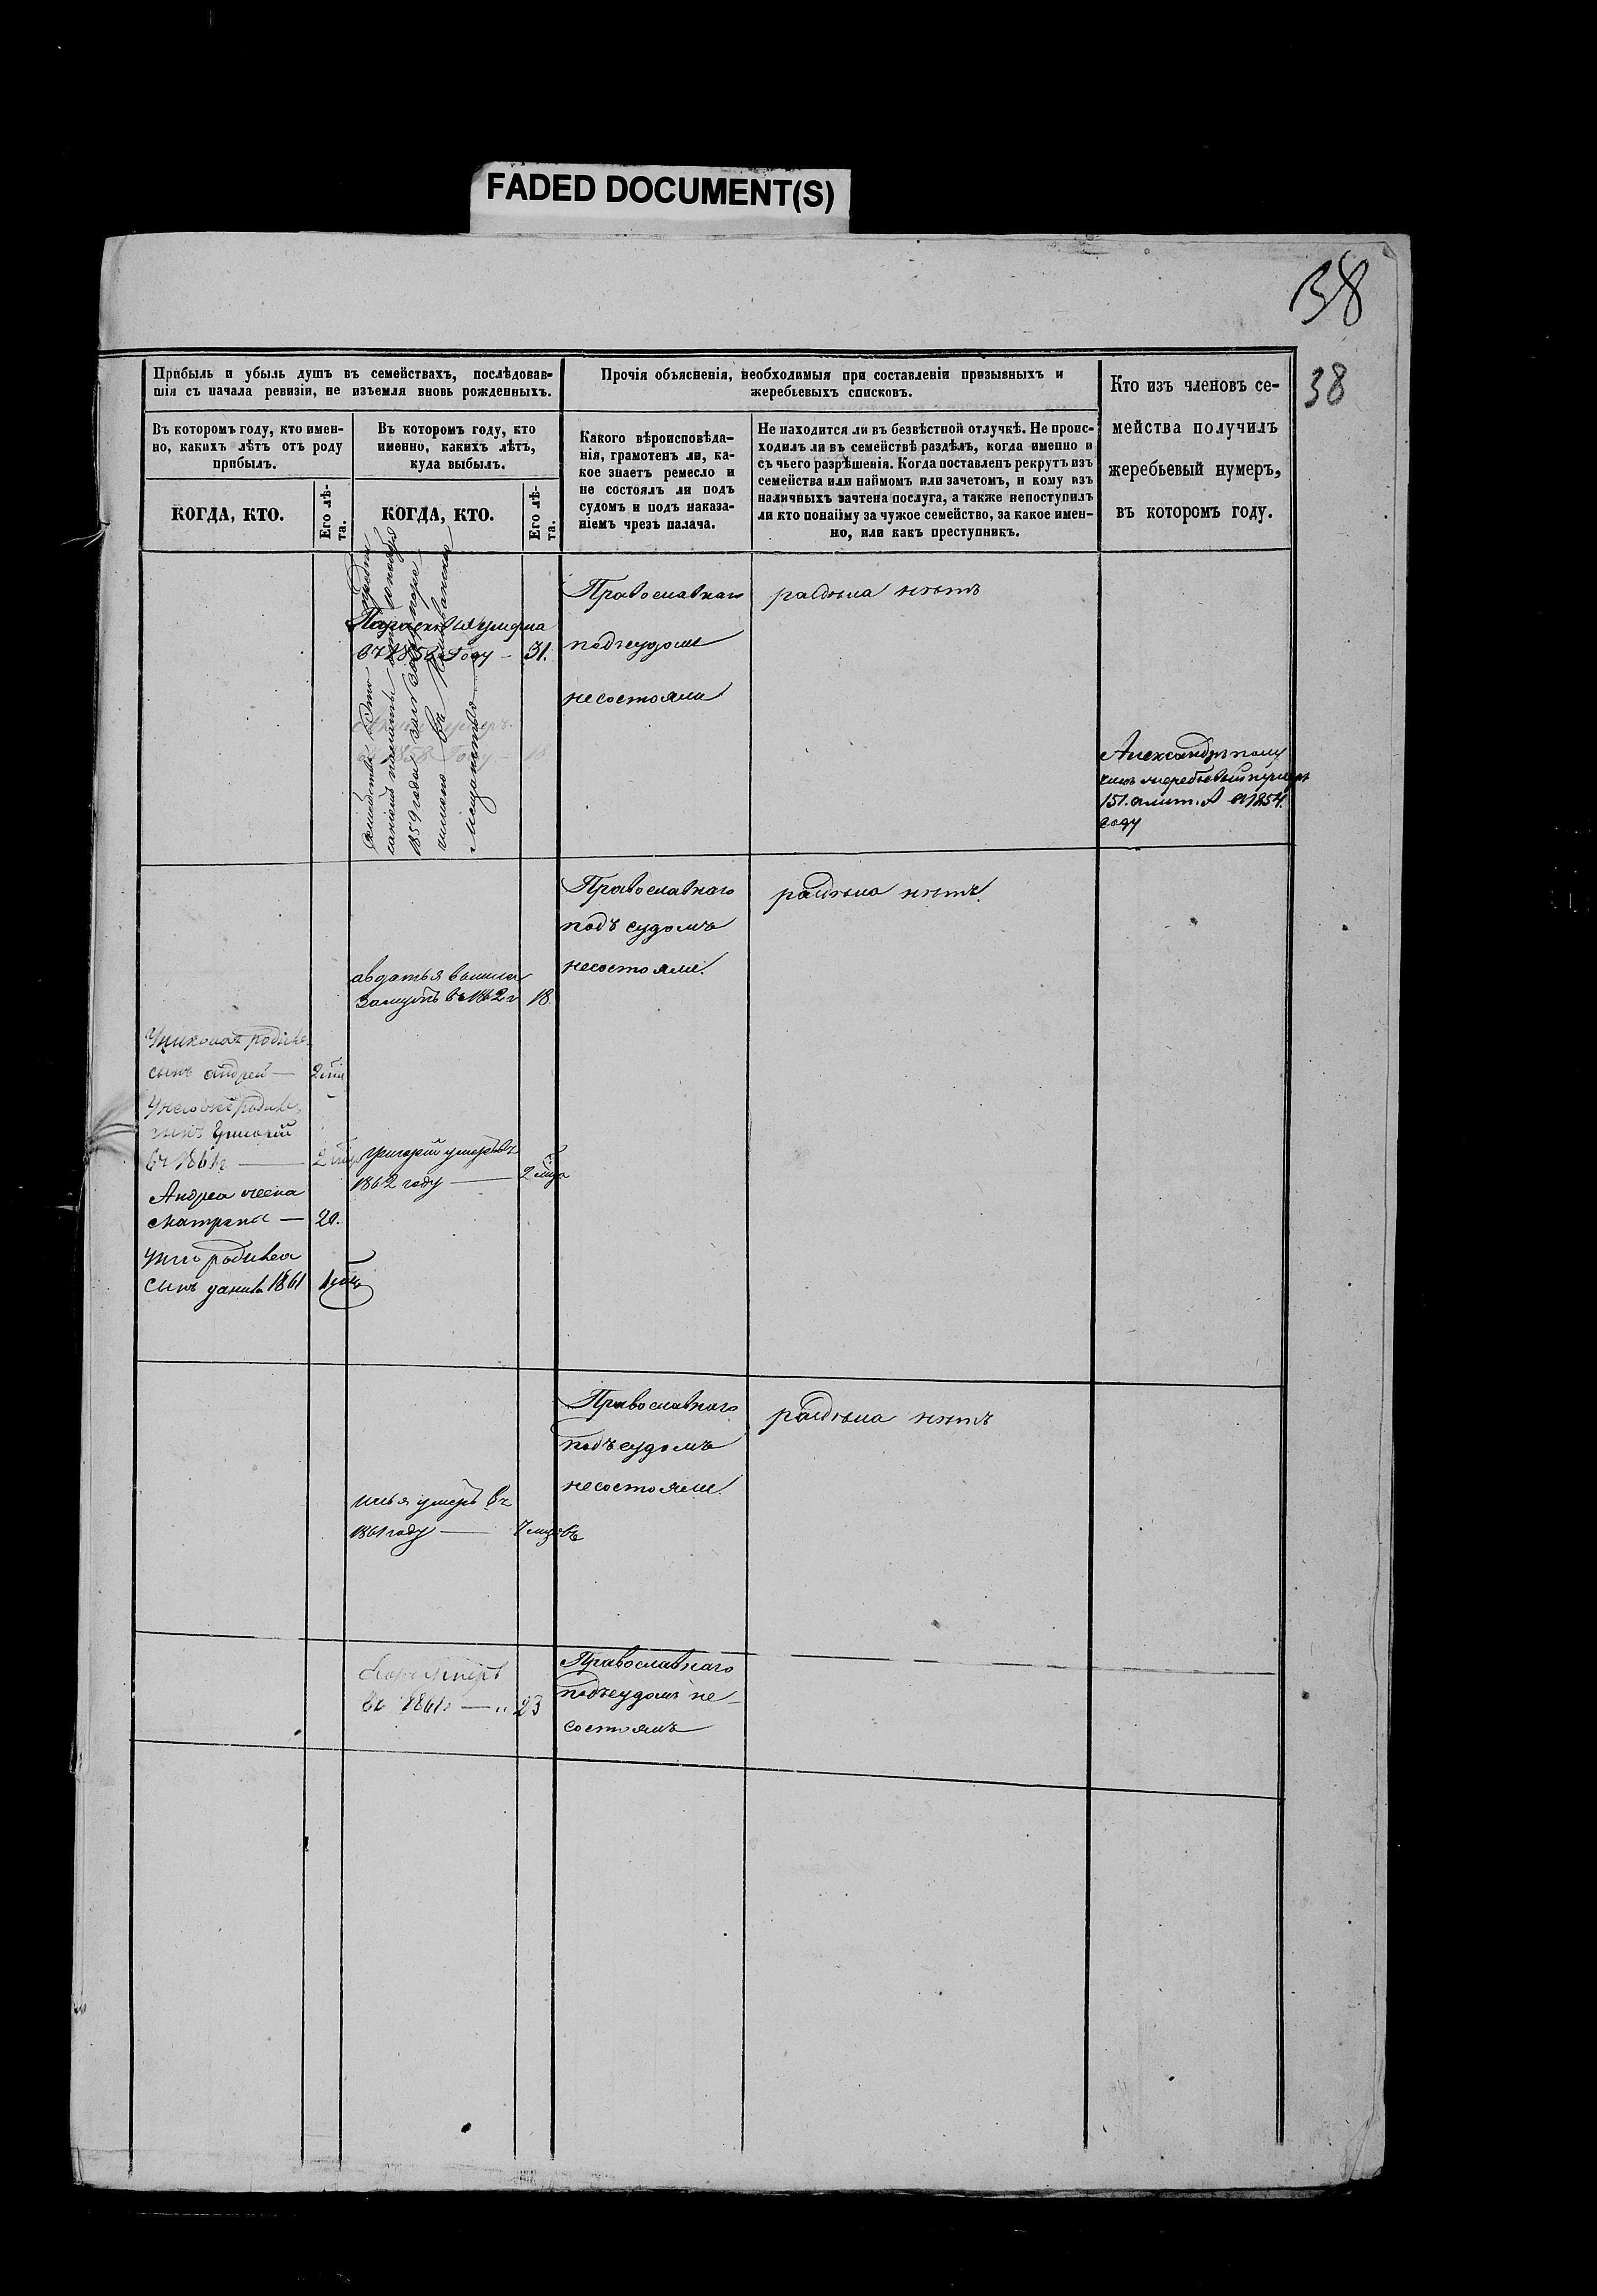 FADED DOCUMENT(S)
38
38
Прибыль и убыль душъ въ семействахъ, послѣдовав-
шія съ начала ревизіи, не изъемля вновь рожденныхъ.
Прочія объясненія, необходимыя при составленіи призывныхъ и
жеребьевыхъ списковъ.
Кто изъ членовъ се-
мейства получилъ
жеребьевый нумеръ,
въ которомъ году.
Въ которомъ году, кто имен-
но, какихъ лѣтъ отъ роду
прибылъ.
Въ которомъ году, кто
именно, какихъ лѣтъ,
куда выбылъ.
Какого вѣроисповѣда-
нія, грамотенъ ли, ка-
кое знаетъ ремесло и
не состоялъ ли подъ
судомъ и подъ наказа-
ніемъ чрезъ палача.
Не находится ли въ безвѣстной отлучкѣ. Не проис-
ходилъ ли въ семействѣ раздѣлъ, когда именно и
съ чьего разрѣшенія. Когда поставленъ рекрутъ изъ
семейства или наймомъ или зачетомъ, и кому изъ
наличныхъ зачтена послуга, а также непоступилъ
ли кто понайму за чужое семейство, за какое имен-
но, или какъ преступникъ.
КОГДА, КТО.
Его лѣ-
та.
КОГДА, КТО.
Его лѣ-
та.
Семейство это
1859 года
мещанство
Параскевия умерла
въ 1858 Году - 31.
1858 Году - 18
Православнаго
подъсудомъ
несостояли
раздѣла нѣтъ
Александръ полу
чилъ жеребьевый нумеръ
151. а лит. А в 1854
году
Православнаго
подъ судомъ
несостояли.
раздѣла нѣтъ.
авдотья вышла
Замужъ въ 1862 г 18.
Униколая родился
сынъ андрей —
Унегоже родился
сынъ Григорій
въ 1861 г —
Григорій умеръ въ
1862 году —
Андрея жена
матрена — 20.
Унго родился
сынъ данила 1861
Православнаго
подъ судомъ
несостояли.
раздѣла нѣтъ
илья умеръ въ
1861 году —
умеръ
въ 1861 г — " 23
Православнаго
подъсудомъ не-
состоялъ